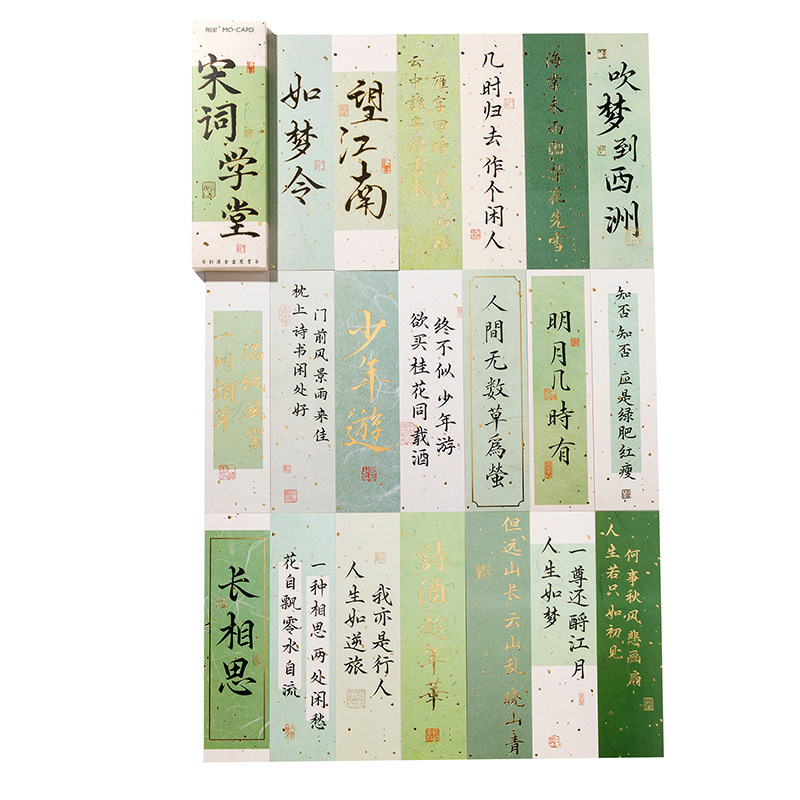 MO·CARD
宋词学堂
如梦令
望江南
云中誰寄錦書來
雁字回時 月滿西樓
几时归去 作个闲人
海棠未雨 梨花先雪
吹梦到西洲
一川烟草
满城風絮
枕上诗书闲处好
门前风景雨来佳
少年遊
欲买桂花同载酒
终不似 少年游
人間无数草爲螢
明月几時有
知否 知否 应是绿肥红瘦
长相思
花自飘零水自流
一种相思 两处闲愁
人生如逆旅
我亦是行人
詩酒趁年華
但远山长 云山乱 晓山青
人生如梦
一尊还酹江月
人生若只如初见
何事秋风悲画扇